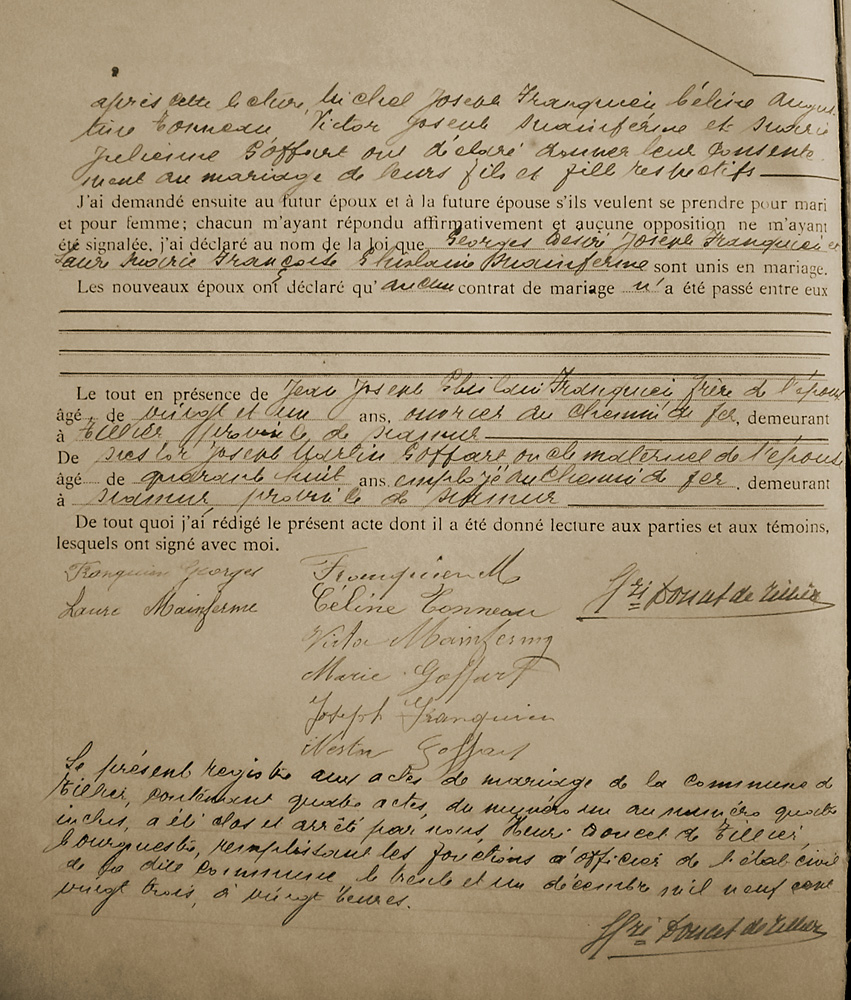 après cette lecture, Michel Joseph Franquien Céline Augus-
tine Tonneau, Victor Joseph Mainferme et Marie
Julienne Goffart ont déclaré donner leur consente
ment au mariage de leurs fils et fille respectifs
J'ai demandé ensuite au futur époux et à la future épouse s'ils veulent se prendre pour mari
et pour femme; chacun m'ayant répondu affirmativement et aucune opposition ne m'ayant
été signalée, j'ai déclaré au nom de la loi que Georges Désiré Joseph Franquien et
Laure Marie Françoise Ghislaine Mainferme sont unis en mariage.
Les nouveaux époux ont déclaré qu'aucun contrat de mariage n'a été passé entre eux
Le tout en présence de Jean Joseph Ghislain Franquien frère de l'époux
âgé de vingt et un ans, ouvrier au chemin de fer, demeurant
à Tillier province de Namur
De Nestor Joseph Martin Goffart oncle maternel de l'épouse
âgé de quarante huit ans, employé au chemin de fer, demeurant
à Namur province de Namur
De tout quoi j'ai rédigé le présent acte dont il a été donné lecture aux parties et aux témoins,
lesquels ont signé avec moi.
Franquien Georges
Laure Mainferme
Franquien M
Céline Tonneau
Victor Mainferme
Marie Goffart
Joseph Franquien
Nestor Goffart
Hri Doucet de Tillier
Le présent registre aux actes de mariage de la commune de
Tillier, contenant quatre actes, du numéro un au numéro quatre
inclus, a été clos et arrêté par nous, Henri Doucet de Tillier,
bourgmestre, remplissant les fonctions d'officier de l'état civil
de la dite commune le trente et un décembre mil neuf cent
vingt trois, à vingt heures.
Hri Doucet de Tillier